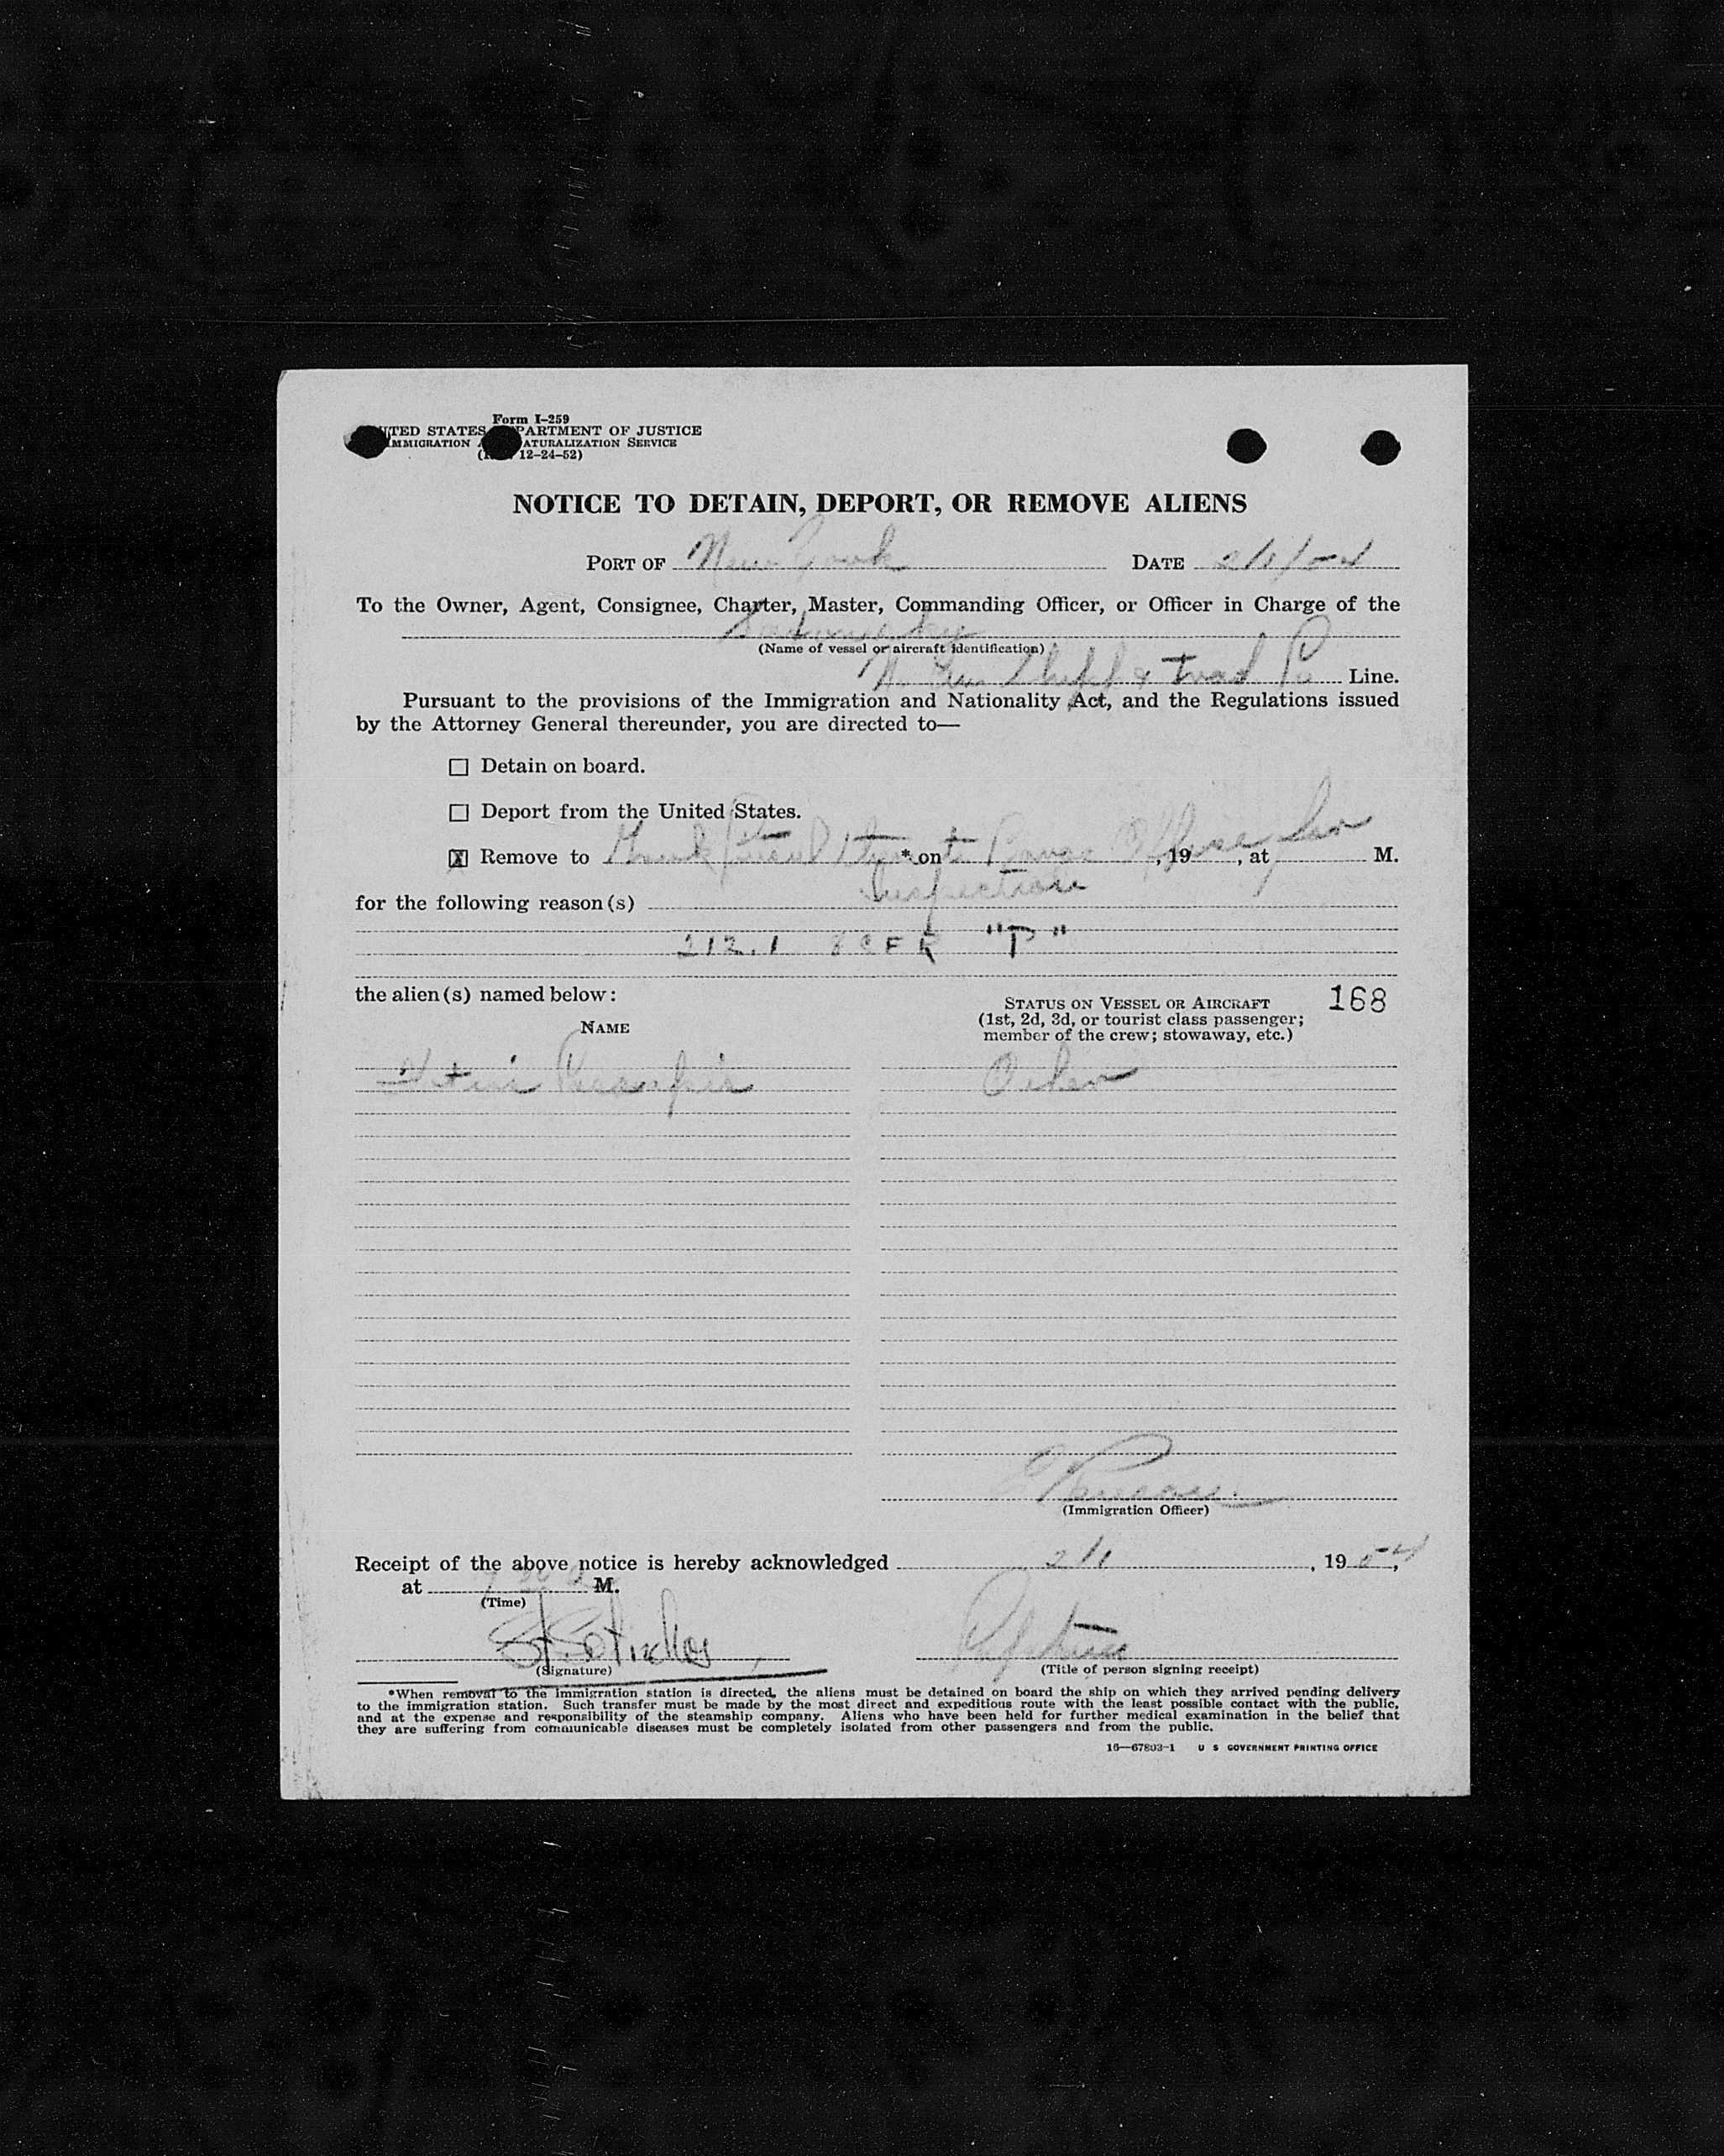 Form I-259
UNITED STATES DEPARTMENT OF JUSTICE
IMMIGRATION NATURALIZATION SERVICE
12-24-52)
NOTICE TO DETAIN, DEPORT, OR REMOVE ALIENS
PORT OF New York DATE 2/1/54
To the Owner, Agent, Consignee, Charter, Master, Commanding Officer, or Officer in Charge of the
(Name of vessel or aircraft identification)
& Trad Co Line.
Pursuant to the provisions of the Immigration and Nationality Act, and the Regulations issued
by the Attorney General thereunder, you are directed to—
☐ Detain on board.
☐ Deport from the United States.
☒ Remove to * on Office, for , 19 , at M.
Inspection
for the following reason(s)
212.1 8 CFR "P"
the alien(s) named below:
168
NAME
STATUS ON VESSEL OR AIRCRAFT
(1st, 2d, 3d, or tourist class passenger;
member of the crew; stowaway, etc.)
Oiler
(Immigration Officer)
Receipt of the above notice is hereby acknowledged 2/1, 1954,
at M.
(Time)
(Signature)
(Title of person signing receipt)
*When removal to the immigration station is directed, the aliens must be detained on board the ship on which they arrived pending delivery
to the immigration station. Such transfer must be made by the most direct and expeditious route with the least possible contact with the public,
and at the expense and responsibility of the steamship company. Aliens who have been held for further medical examination in the belief that
they are suffering from communicable diseases must be completely isolated from other passengers and from the public.
16—67803-1 U S GOVERNMENT PRINTING OFFICE